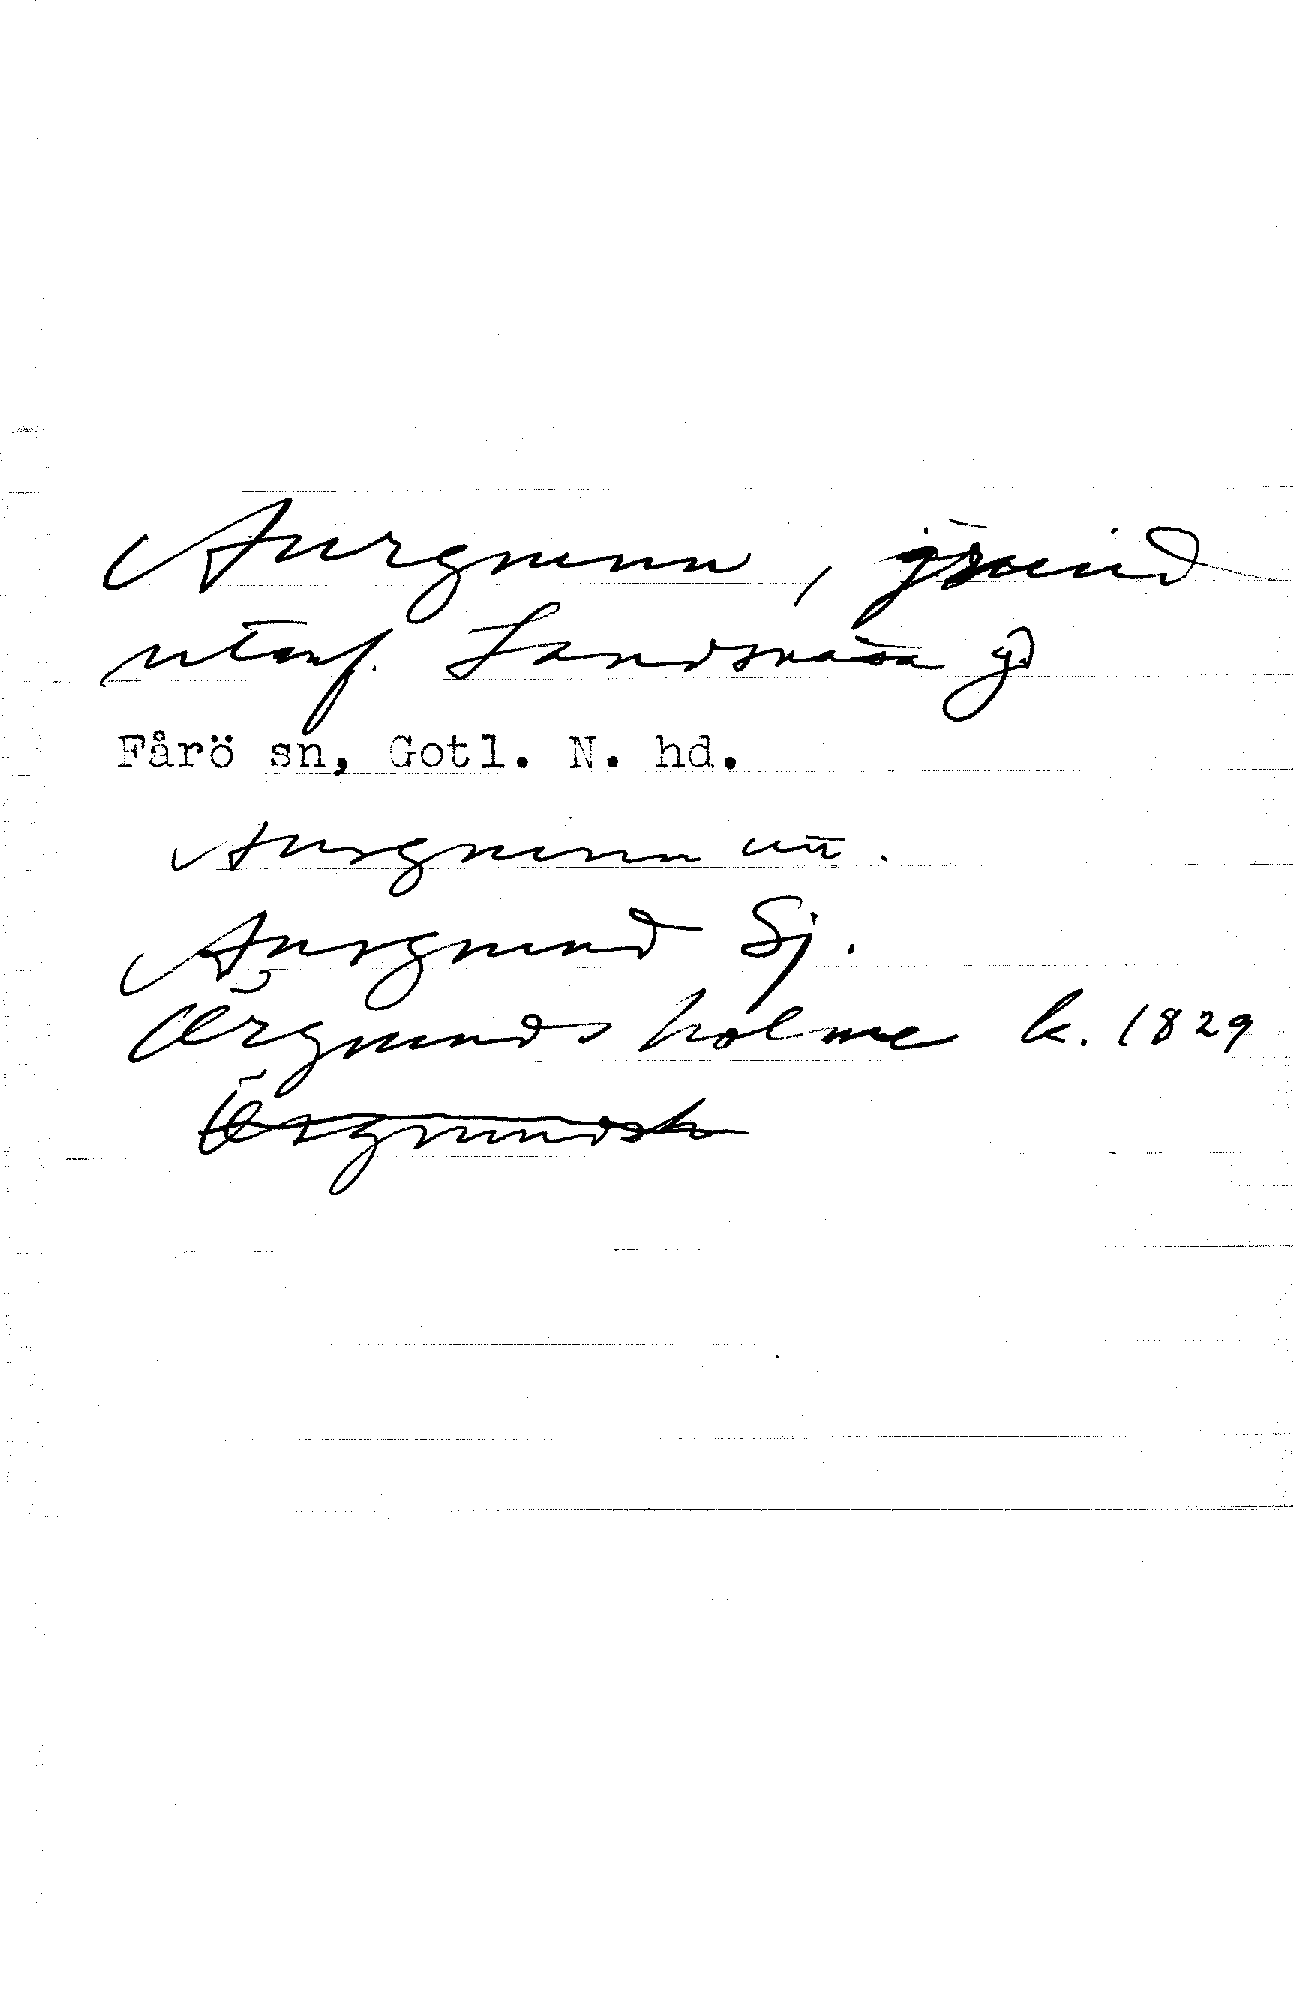 Aurgrunn, grund
utanf. Landsnäsa gd
Fårö sn, Gotl. N. hd.
Aurgrunn utt.
Aurgrund Sj.
Örgrunds holme k. 1829
Örgrundsh